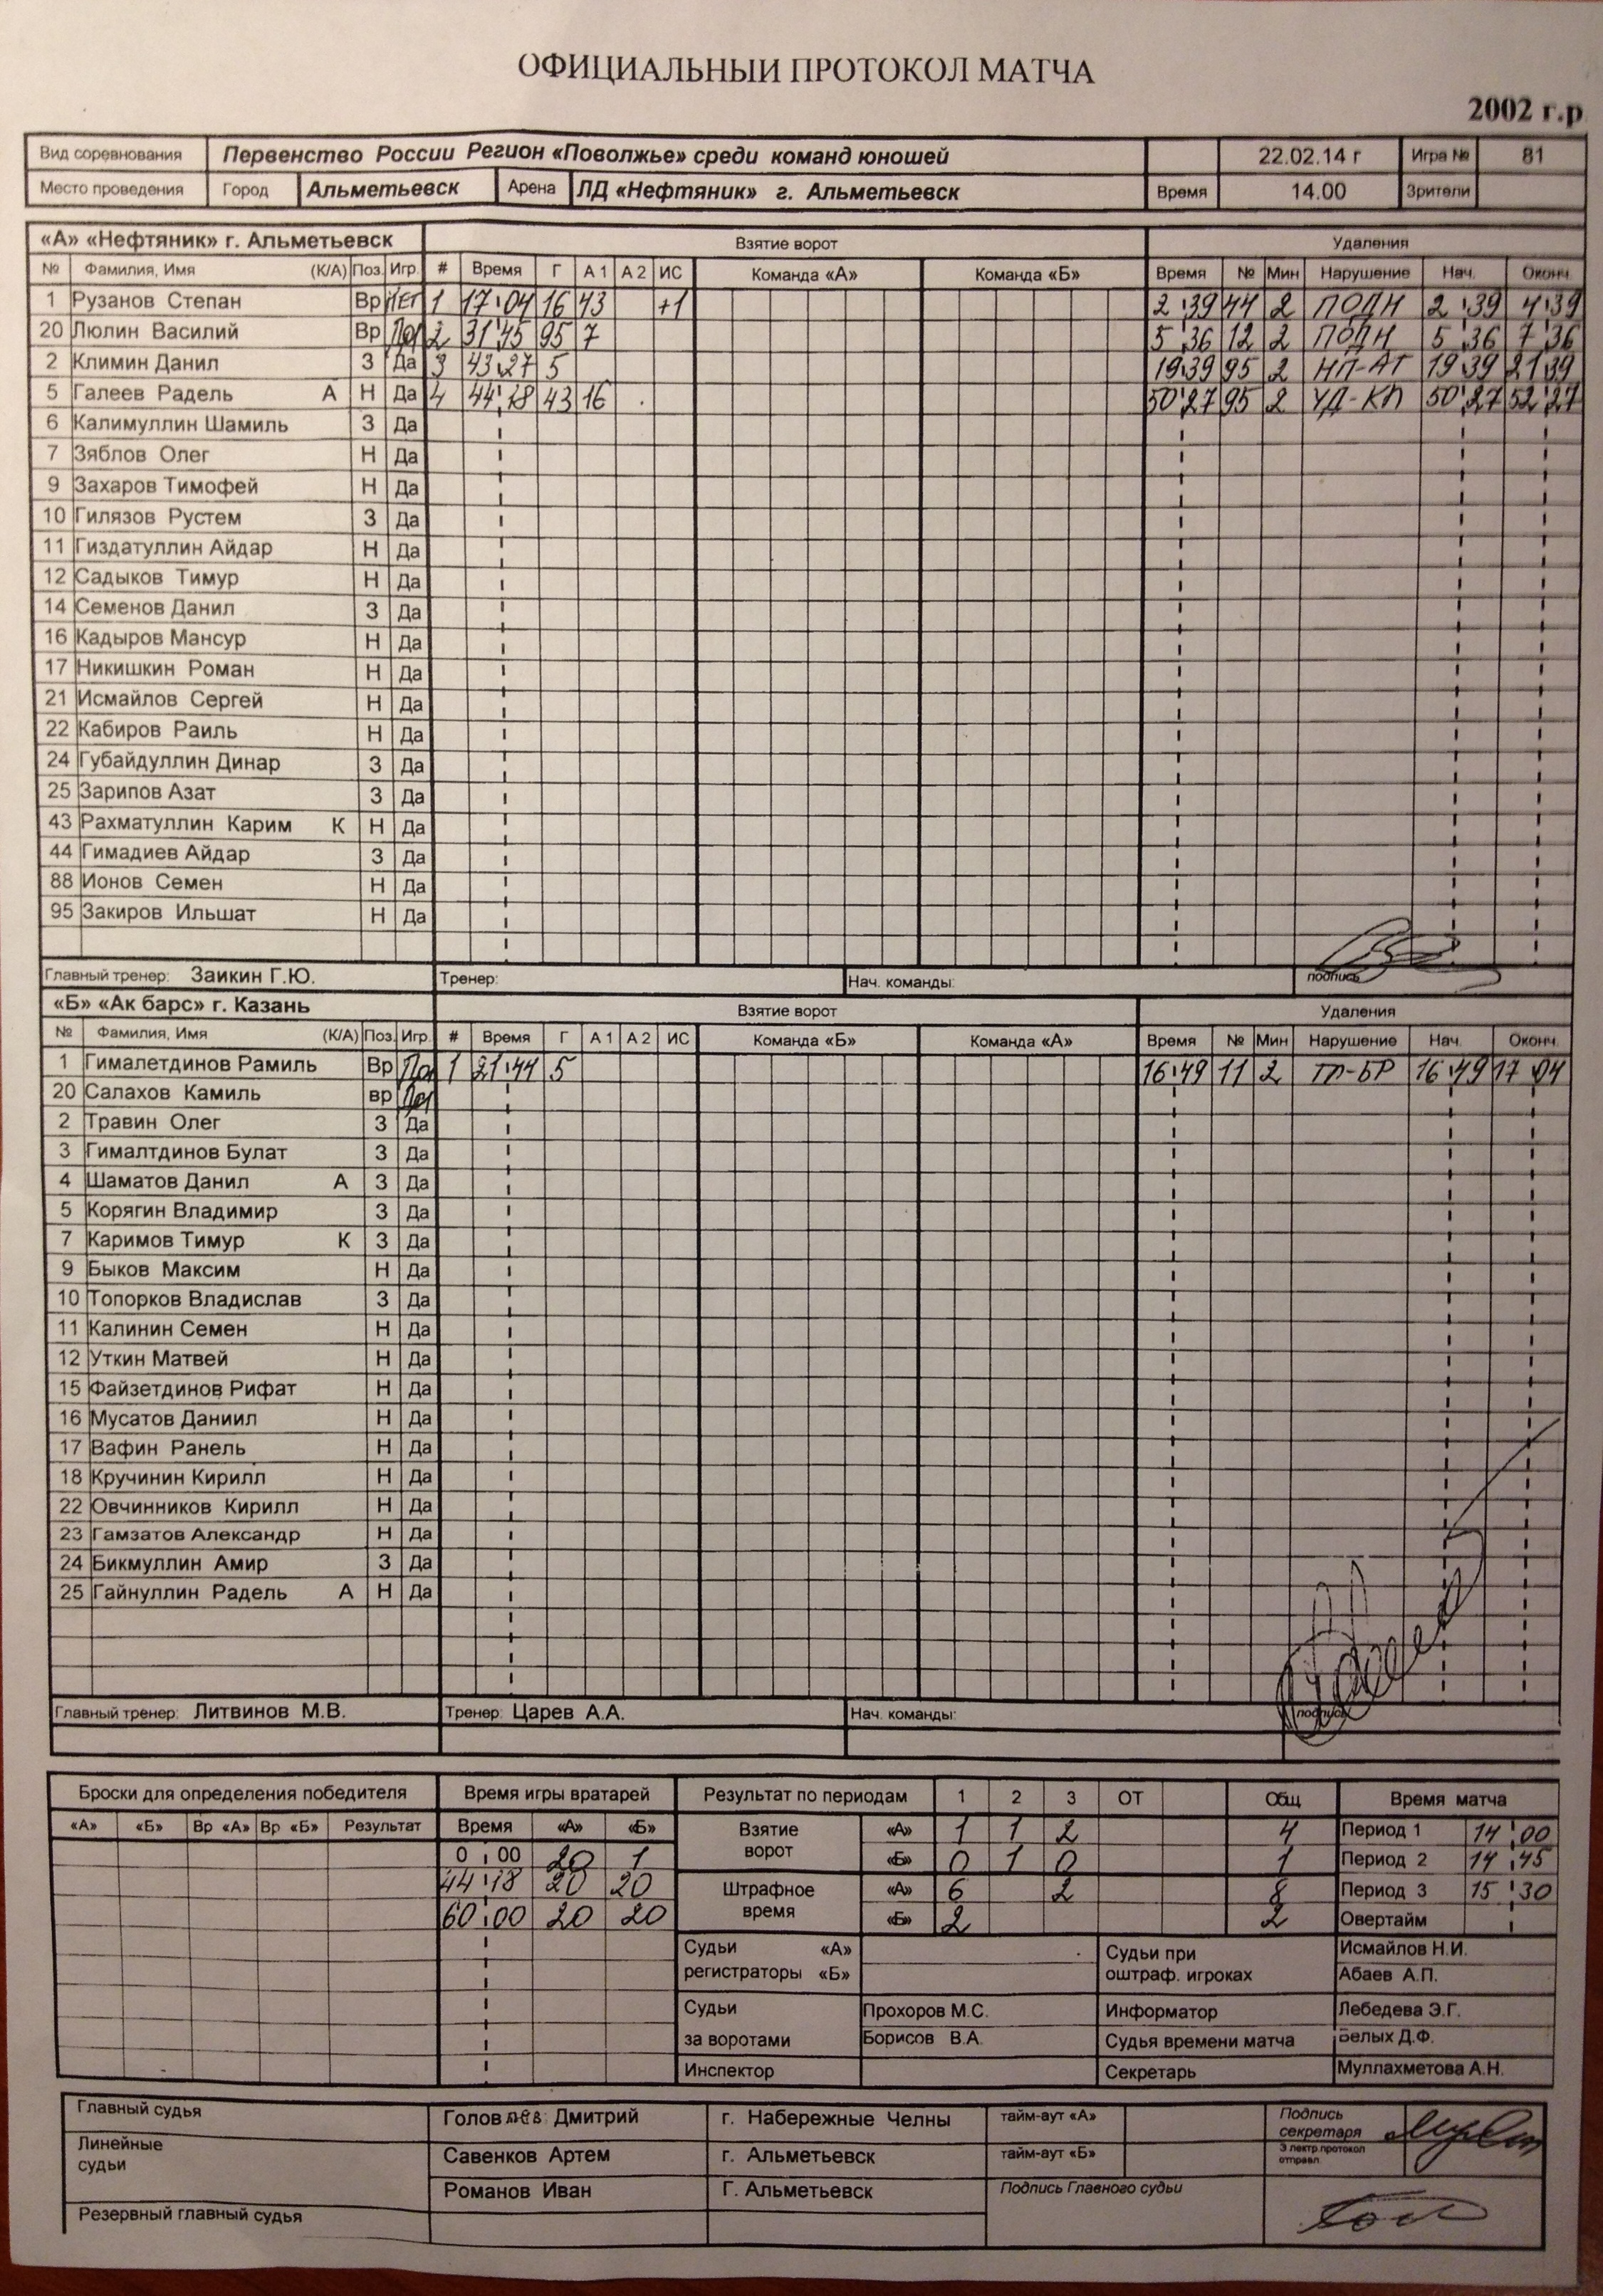 ОФИЦИАЛЬНЫЙ ПРОТОКОЛ МАТЧА
2002 г.р
Вид соревнования Первенство России Регион «Поволжье» среди команд юношей 22.02.14 г Игра № 81
Место проведения Город Альметьевск Арена ЛД «Нефтяник» г. Альметьевск Время 14.00 Зрители
«А» «Нефтяник» г. Альметьевск Взятие ворот Удаления
№ Фамилия, Имя (К/А) Поз. Игр. # Время Г А 1 А 2 ИС Команда «А» Команда «Б» Время № Мин Нарушение Нач. Оконч.
1 Рузанов Степан Вр НЕТ 1 17:04 16 43 +1 2:39 44 2 ПОДН 2:39 4:39
20 Люлин Василий Вр Да 2 31:45 95 7 5:36 12 2 ПОДН 5:36 7:36
2 Климин Данил З Да 3 43:27 5 19:39 95 2 НП-АТ 19:39 21:39
5 Галеев Радель А Н Да 4 44:18 43 16 50:27 95 2 УД-КП 50:27 52:27
6 Калимуллин Шамиль З Да
7 Зяблов Олег Н Да
9 Захаров Тимофей Н Да
10 Гилязов Рустем З Да
11 Гиздатуллин Айдар Н Да
12 Садыков Тимур Н Да
14 Семенов Данил З Да
16 Кадыров Мансур Н Да
17 Никишкин Роман Н Да
21 Исмайлов Сергей Н Да
22 Кабиров Раиль Н Да
24 Губайдуллин Динар З Да
25 Зарипов Азат З Да
43 Рахматуллин Карим К Н Да
44 Гимадиев Айдар З Да
88 Ионов Семен Н Да
95 Закиров Ильшат Н Да
Главный тренер: Заикин Г.Ю. Тренер: Нач. команды: подпись
«Б» «Ак барс» г. Казань Взятие ворот Удаления
№ Фамилия, Имя (К/А) Поз. Игр. # Время Г А 1 А 2 ИС Команда «Б» Команда «А» Время № Мин Нарушение Нач. Оконч.
1 Гималетдинов Рамиль Вр Да 1 21:44 5 16:49 11 2 ТЛ-БР 16:49 17:04
20 Салахов Камиль вр Да
2 Травин Олег З Да
3 Гималтдинов Булат З Да
4 Шаматов Данил А З Да
5 Корягин Владимир З Да
7 Каримов Тимур К З Да
9 Быков Максим Н Да
10 Топорков Владислав З Да
11 Калинин Семен Н Да
12 Уткин Матвей Н Да
15 Файзетдинов Рифат Н Да
16 Мусатов Даниил Н Да
17 Вафин Ранель Н Да
18 Кручинин Кирилл Н Да
22 Овчинников Кирилл Н Да
23 Гамзатов Александр Н Да
24 Бикмуллин Амир З Да
25 Гайнуллин Радель А Н Да
Главный тренер: Литвинов М.В. Тренер: Царев А.А. Нач. команды: подпись
Броски для определения победителя Время игры вратарей Результат по периодам 1 2 3 ОТ Общ Время матча
«А» «Б» Вр «А» Вр «Б» Результат Время «А» «Б» Взятие ворот «А» 1 1 2 4 Период 1 14:00
0:00 20 1 «Б» 0 1 0 1 Период 2 14:45
44:18 20 20 Штрафное время «А» 6 2 8 Период 3 15:30
60:00 20 20 «Б» 2 2 Овертайм
Судьи «А» Судьи при Исмайлов Н.И.
регистраторы «Б» оштраф. игроках Абаев А.П.
Судьи Прохоров М.С. Информатор Лебедева Э.Г.
за воротами Борисов В.А. Судья времени матча Белых Д.Ф.
Инспектор Секретарь Муллахметова А.Н.
Главный судья Головлев Дмитрий г. Набережные Челны тайм-аут «А» Подпись секретаря
Линейные судьи Савенков Артем г. Альметьевск тайм-аут «Б» Электр.протокол отправл.
Романов Иван Г. Альметьевск Подпись Главного судьи
Резервный главный судья